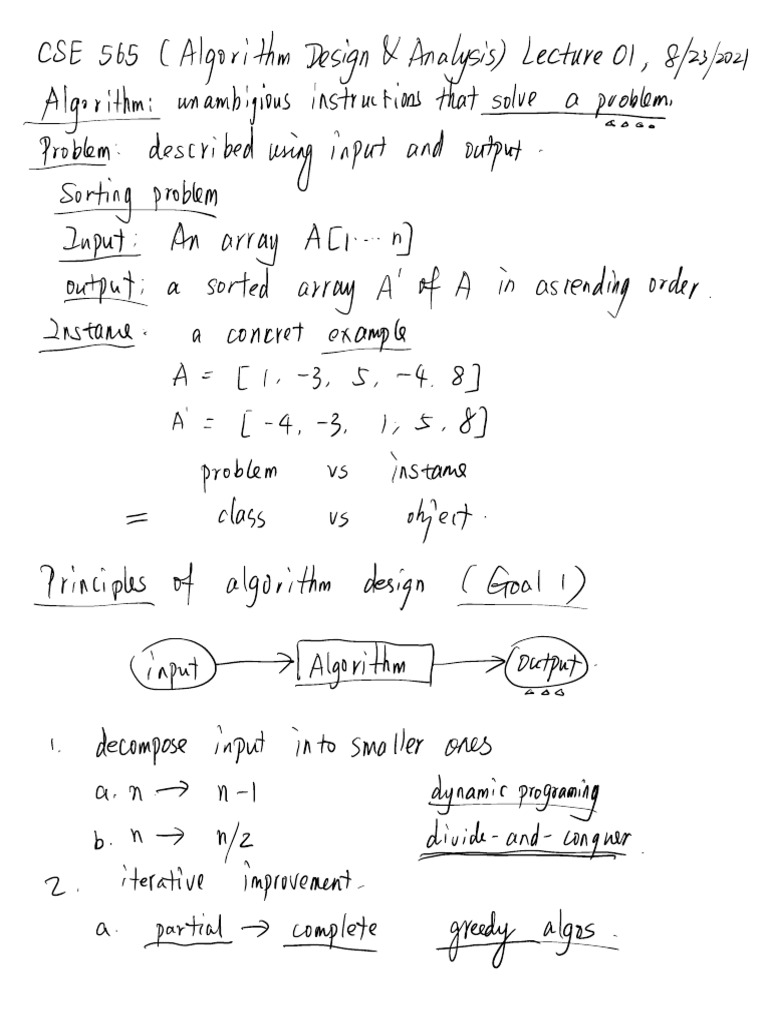 CSE 565 (Algorithm Design & Analysis) Lecture 01, 8/23/2021
Algorithm: unambigious instructions that solve a problem.
Problem: described using input and output.
Sorting problem
Input: An array A[1····n]
output: a sorted array A' of A in ascending order.
Instance. a concret example
A = [1, -3, 5, -4, 8]
A' = [-4, -3, 1, 5, 8]
problem vs instance
= class vs object.
Principles of algorithm design (Goal 1)
input → Algorithm → output
1. decompose input into smaller ones
a. n → n-1 dynamic programing
b. n → n/2 divide-and-conquer
2. iterative improvement.
a. partial → complete greedy algos.